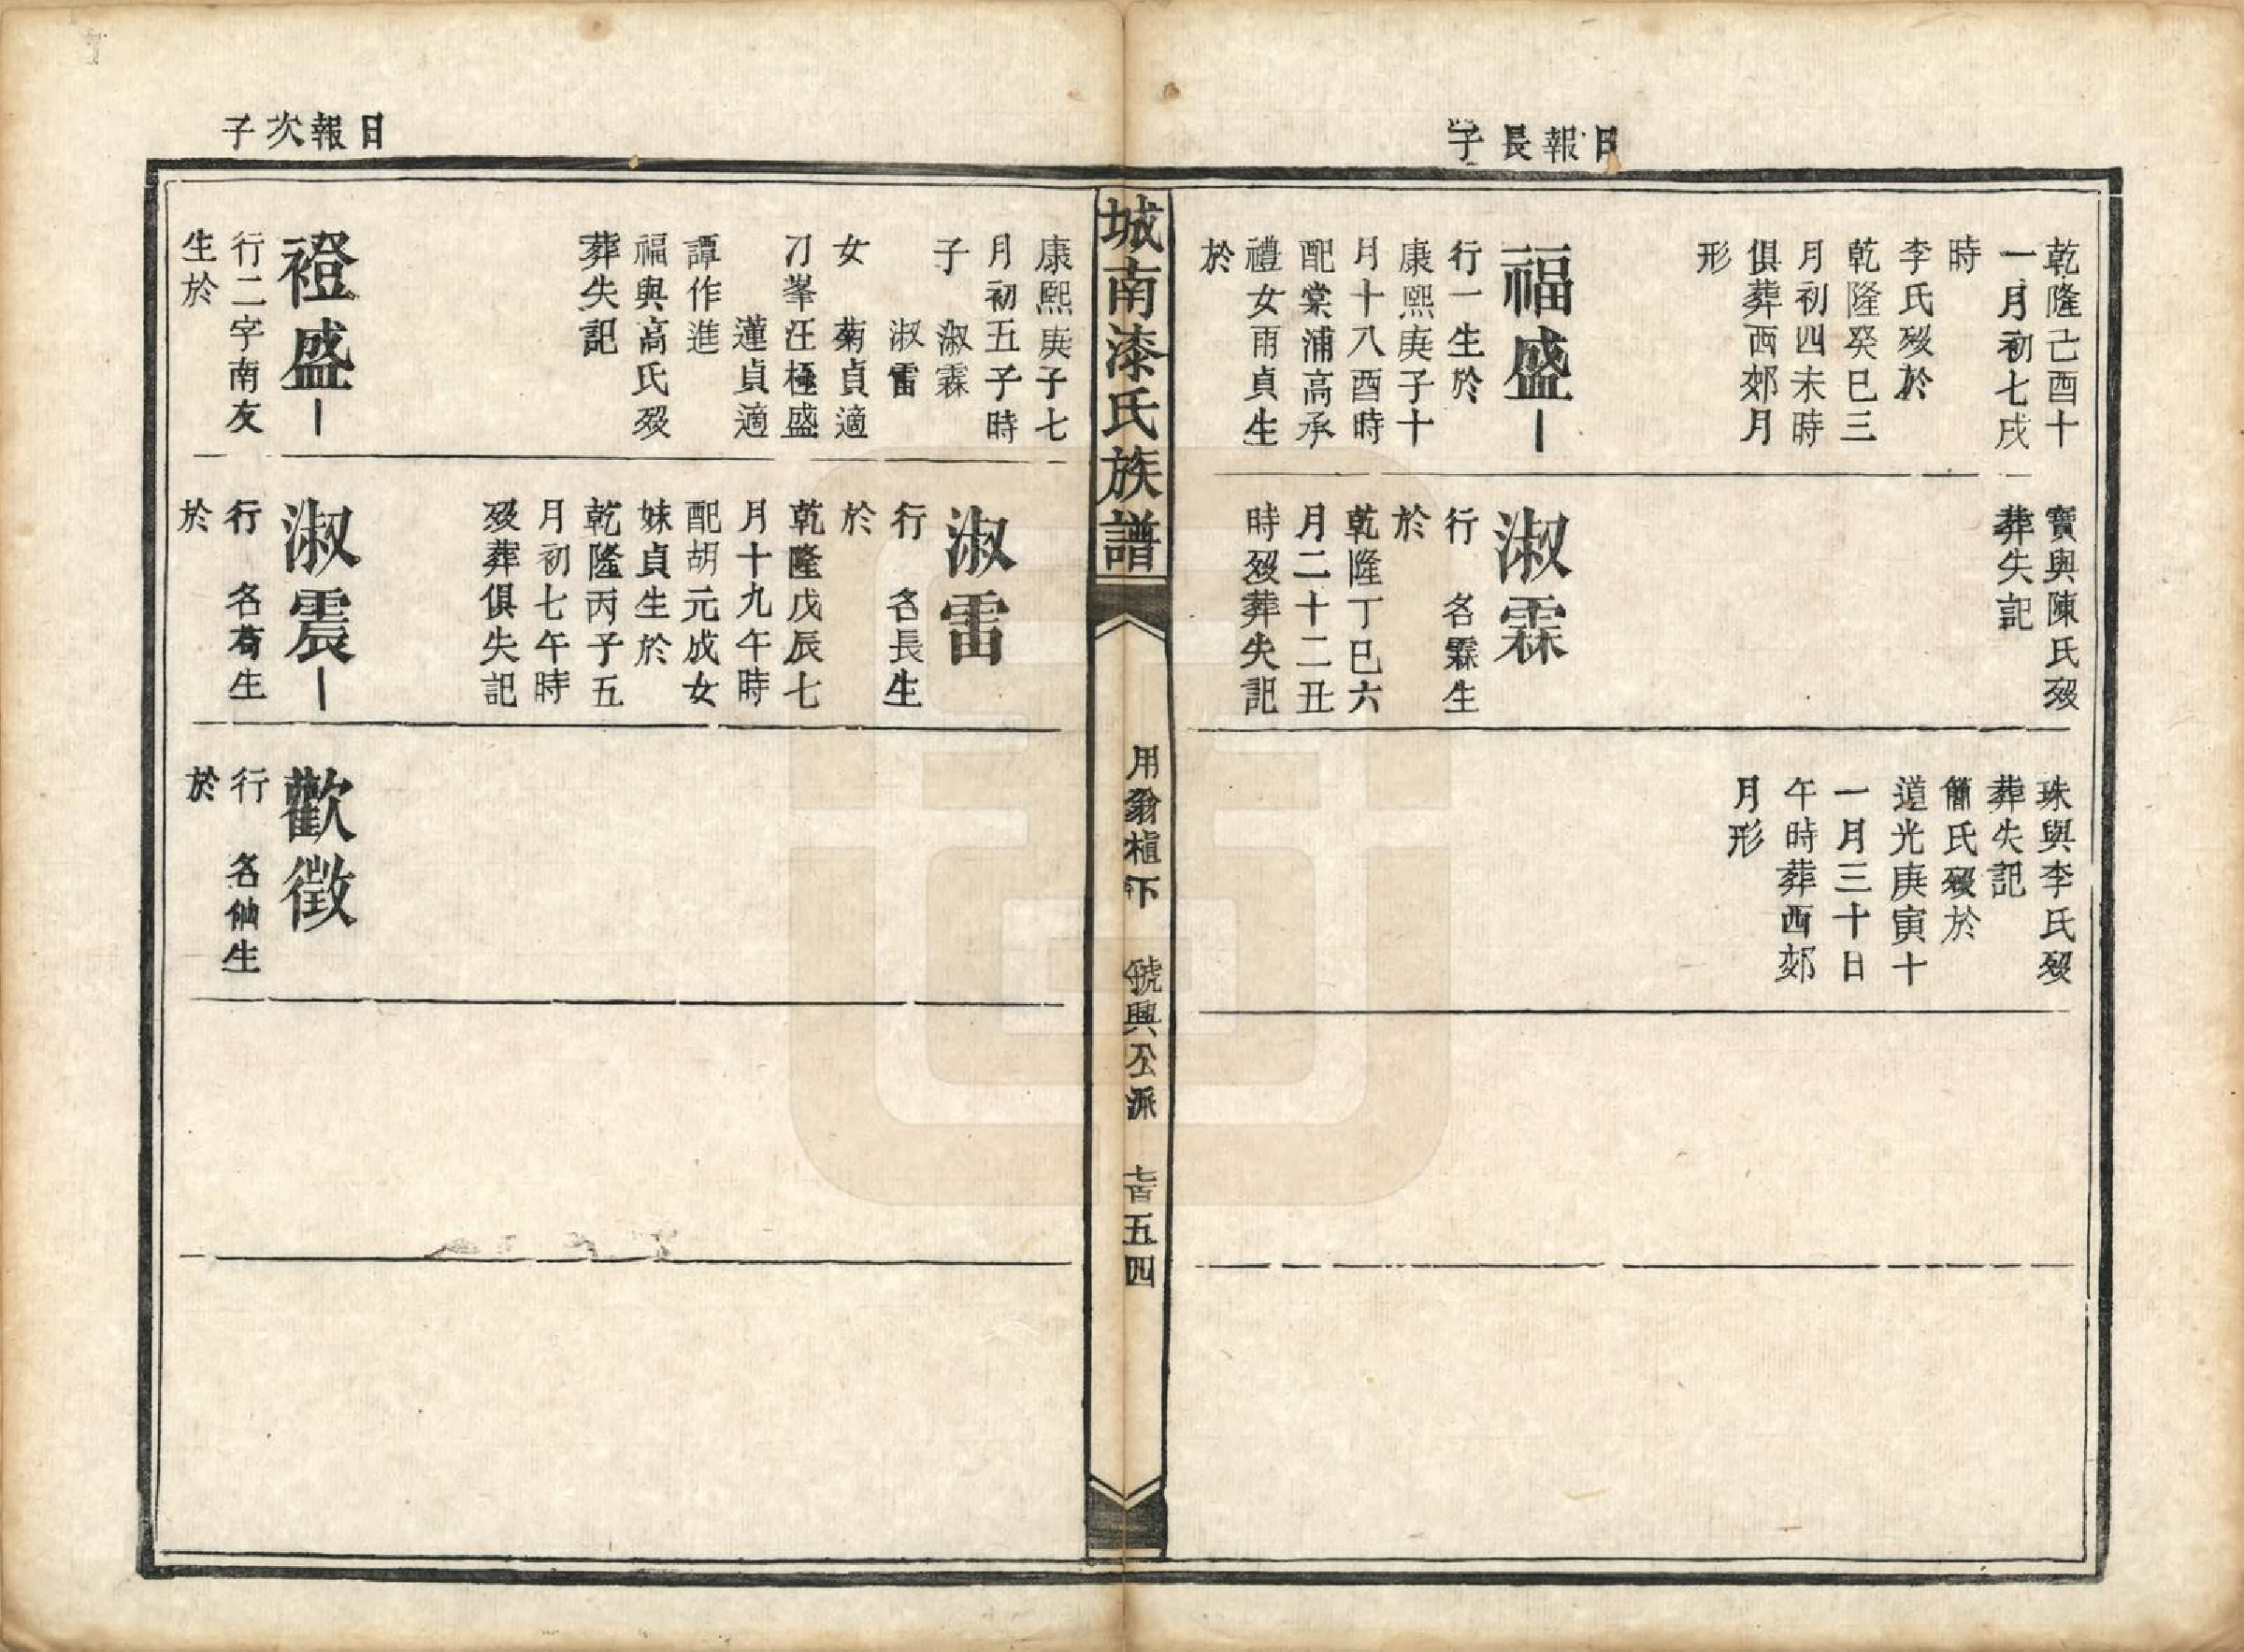 日報長子
乾隆己酉十
一月初七戌
時
李氏歿於
乾隆癸巳三
月初四未時
俱葬西郊月
形
福盛
行一生於
康熙庚子十
月十八酉時
配棠浦高承
禮女雨貞生
於
寶與陳氏歿
葬失記
淑霖
行　名霖生
於
乾隆丁巳六
月二十二丑
時歿葬失記
珠與李氏歿
葬失記
簡氏歿於
道光庚寅十
一月三十日
午時葬西郊
月形
城南漆氏族譜
用翁植下　號興公派　七百五四
日報次子
康熙庚子七
月初五子時
子　淑霖
淑雷
女　菊貞適
刀峯汪極盛
蓮貞適
譚作進
福與高氏歿
葬失記
橙盛
行二字南友
生於
淑雷
行　名長生
於
乾隆戊辰七
月十九午時
配胡元成女
妹貞生於
乾隆丙子五
月初七午時
歿葬俱失記
淑震
行　名苟生
於
歡徵
行　名仙生
於